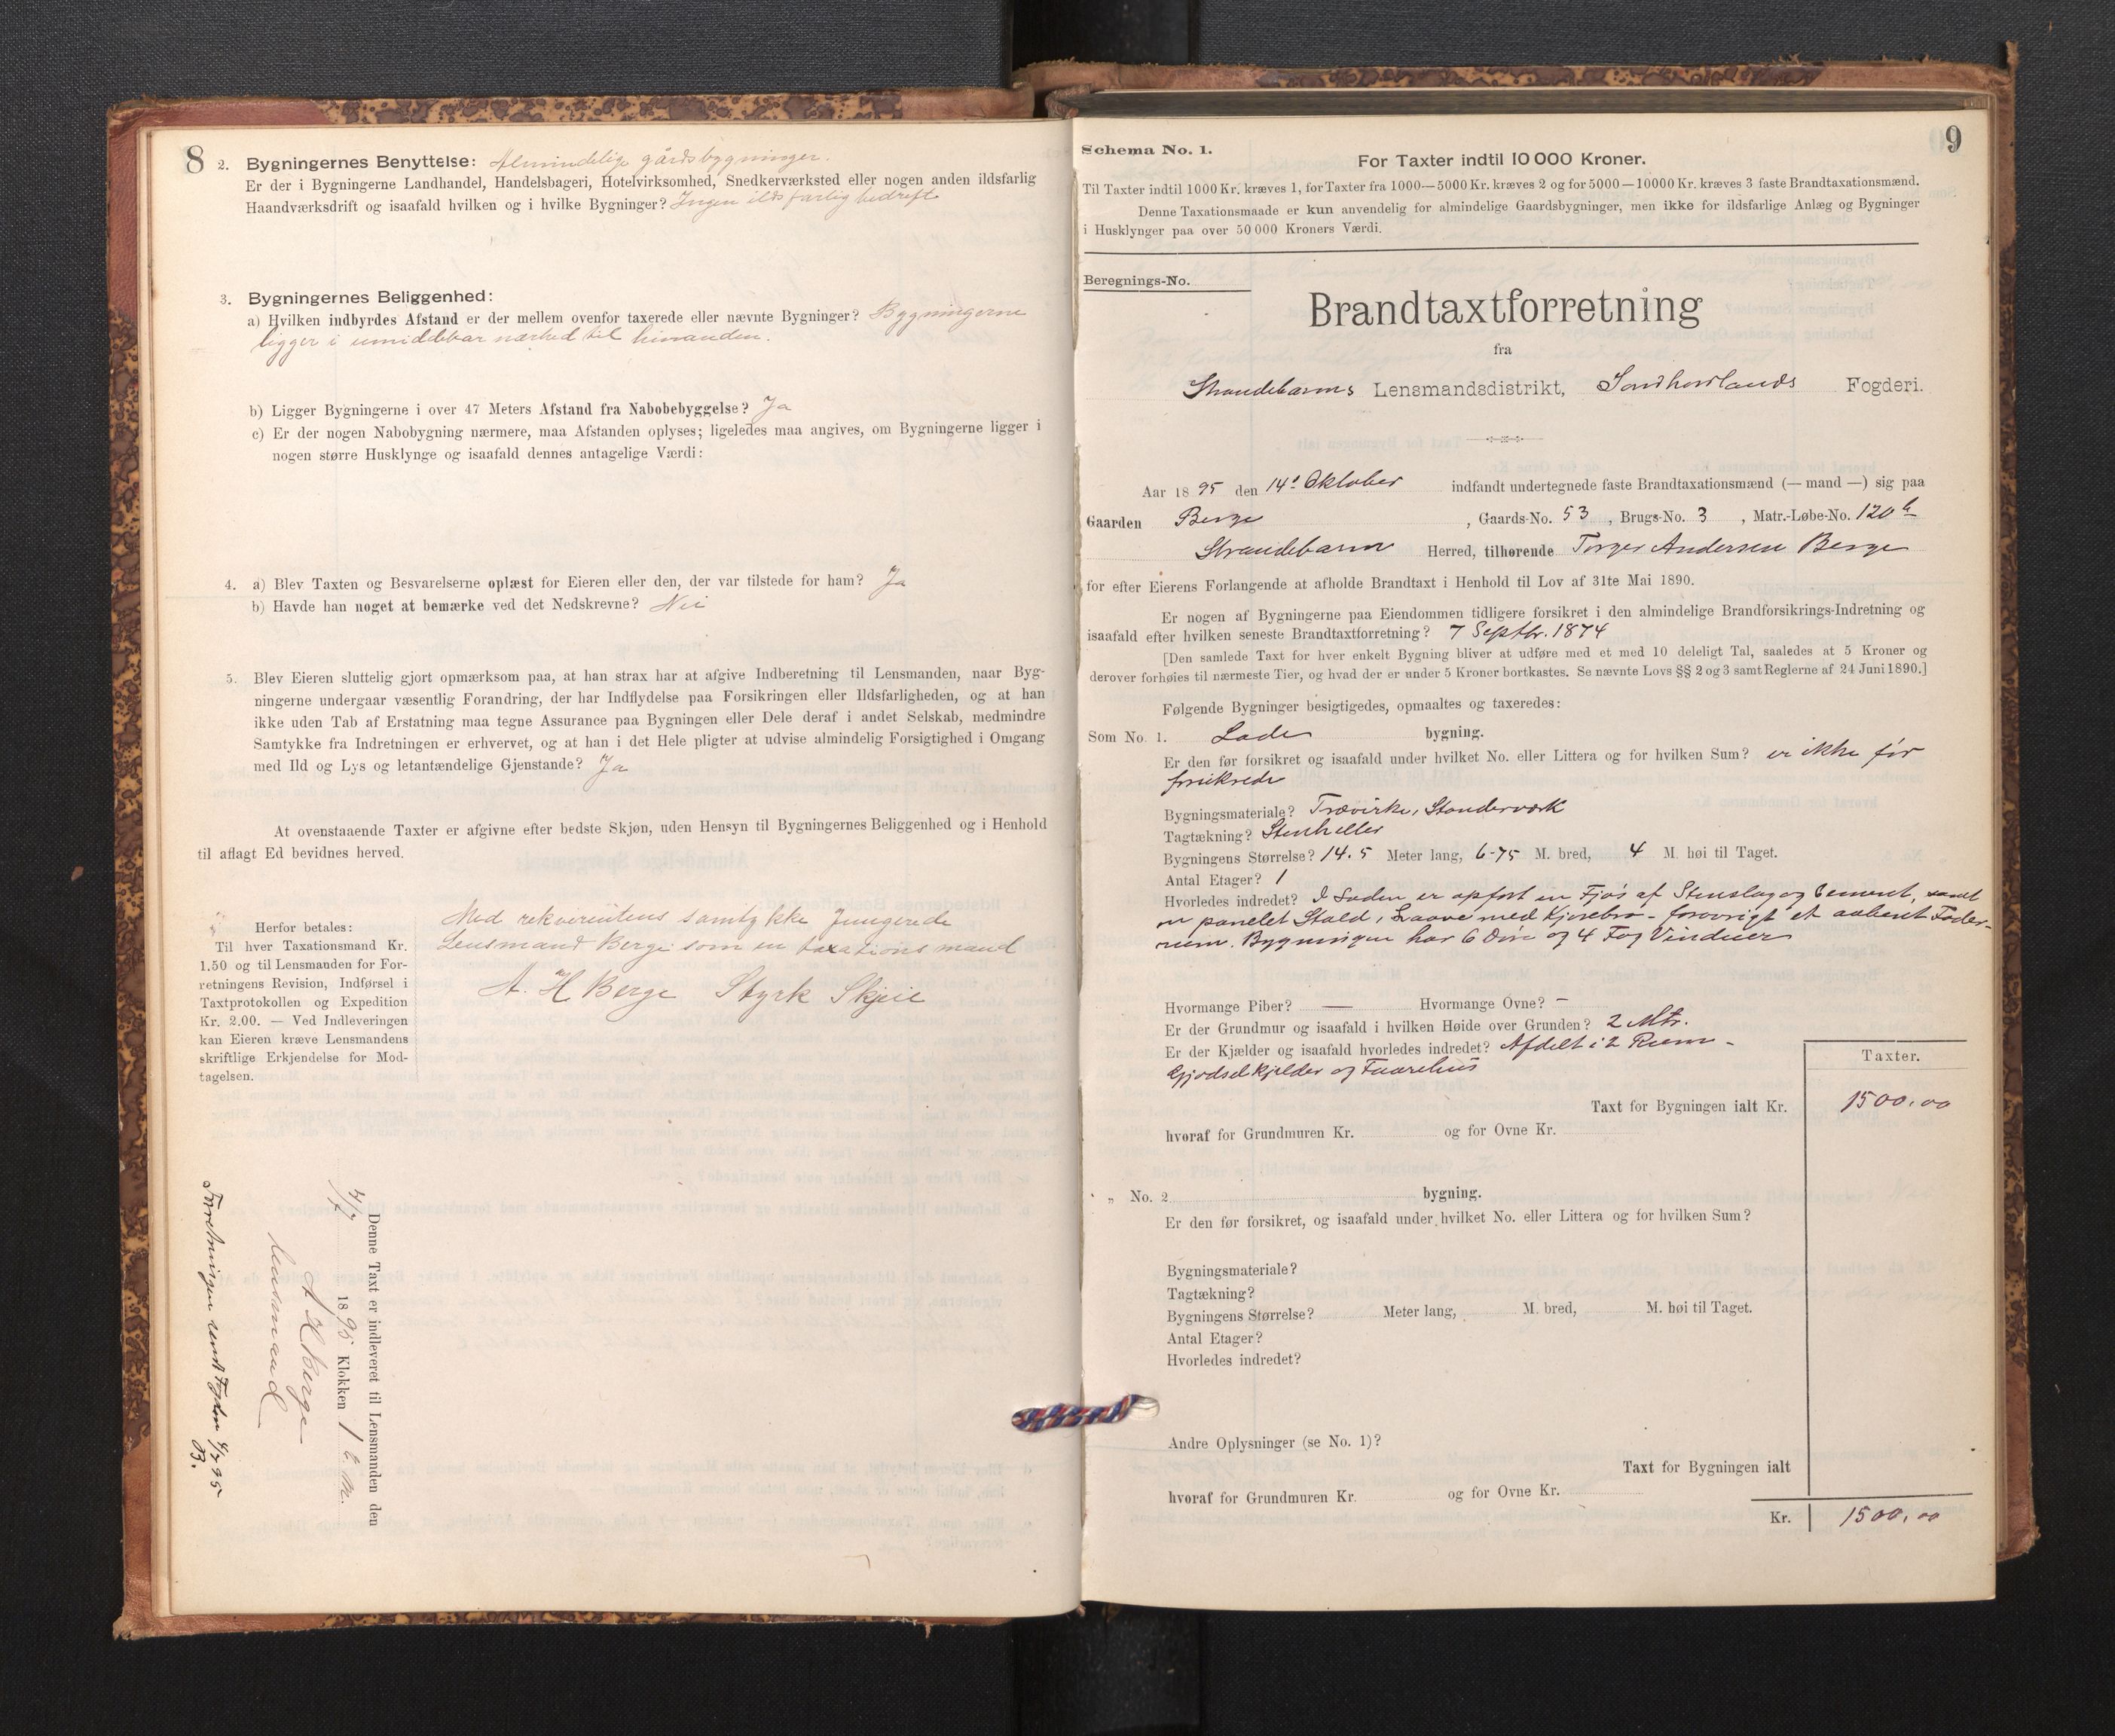 8
2. Bygningernes Benyttelse: Almindelige gårdsbygninger.
Er der i Bygningerne Landhandel, Handelsbageri, Hotelvirksomhed, Snedkerværksted eller nogen anden ildsfarlig
Haandværksdrift og isaafald hvilken og i hvilke Bygninger? Ingen ildsfarlig bedrift
3. Bygningernes Beliggenhed:
a) Hvilken indbyrdes Afstand er der mellem ovenfor taxerede eller nævnte Bygninger? Bygningerne
ligger i umiddelbar nærhed til hinanden.
b) Ligger Bygningerne i over 47 Meters Afstand fra Nabobebyggelse? Ja
c) Er der nogen Nabobygning nærmere, maa Afstanden oplyses; ligeledes maa angives, om Bygningerne ligger i
nogen større Husklynge og isaafald dennes antagelige Værdi:
4. a) Blev Taxten og Besvarelserne oplæst for Eieren eller den, der var tilstede for ham? Ja
b) Havde han noget at bemærke ved det Nedskrevne? Nei
5. Blev Eieren sluttelig gjort opmærksom paa, at han strax har at afgive Indberetning til Lensmanden, naar Byg-
ningerne undergaar væsentlig Forandring, der har Indflydelse paa Forsikringen eller Ildsfarligheden, og at han
ikke uden Tab af Erstatning maa tegne Assurance paa Bygningen eller Dele deraf i andet Selskab, medmindre
Samtykke fra Indretningen er erhvervet, og at han i det Hele pligter at udvise almindelig Forsigtighed i Omgang
med Ild og Lys og letantændelige Gjenstande? Ja
At ovenstaaende Taxter er afgivne efter bedste Skjøn, uden Hensyn til Bygningernes Beliggenhed og i Henhold
til aflagt Ed bevidnes herved.
Herfor betales:
Til hver Taxationsmand Kr.
1.50 og til Lensmanden for For-
retningens Revision, Indførsel i
Taxtprotokollen og Expedition
Kr. 2.00. — Ved Indleveringen
kan Eieren kræve Lensmandens
skriftlige Erkjendelse for Mod-
tagelsen.
Med rekvirentens samtykke fungerede
Lensmand Berge som en taxationsmand
A. H Berge Styrk Skjeie
Denne Taxt er indleveret til Lensmanden den
4/7 1895 Klokken 1 e.m.
A H Berge
lensmand
Forretningen sendt Fogden 4/7 95
B.
9
Schema No. 1.
For Taxter indtil 10 000 Kroner.
Til Taxter indtil 1000 Kr. kræves 1, for Taxter fra 1000—5000 Kr. kræves 2 og for 5000—10000 Kr. kræves 3 faste Brandtaxationsmænd.
Denne Taxationsmaade er kun anvendelig for almindelige Gaardsbygninger, men ikke for ildsfarlige Anlæg og Bygninger
i Husklynger paa over 50 000 Kroners Værdi.
Beregnings-No.
Brandtaxtforretning
fra
Strandebarms Lensmandsdistrikt, Søndhordlands Fogderi.
Aar 1895 den 14de Oktober indfandt undertegnede faste Brandtaxationsmænd (— mand —) sig paa
Gaarden Berge, Gaards-No. 53, Brugs-No. 3, Matr.-Løbe-No. 120 b
Strandebarm Herred, tilhørende Torger Andersen Berge
for efter Eierens Forlangende at afholde Brandtaxt i Henhold til Lov af 31te Mai 1890.
Er nogen af Bygningerne paa Eiendommen tidligere forsikret i den almindelige Brandforsikrings-Indretning og
isaafald efter hvilken seneste Brandtaxtforretning? 7 Septbr. 1874
[Den samlede Taxt for hver enkelt Bygning bliver at udføre med et med 10 deleligt Tal, saaledes at 5 Kroner og
derover forhøies til nærmeste Tier, og hvad der er under 5 Kroner bortkastes. Se nævnte Lovs §§ 2 og 3 samt Reglerne af 24 Juni 1890.]
Følgende Bygninger besigtigedes, opmaaltes og taxeredes:
Som No. 1. Lade bygning.
Er den før forsikret og isaafald under hvilket No. eller Littera og for hvilken Sum? er ikke før
forsikrede
Bygningsmateriale? Trævirke, Standerværk
Tagtækning? Stenheller
Bygningens Størrelse? 14.5 Meter lang, 6-75 M. bred, 4 M. høi til Taget.
Antal Etager? 1
Hvorledes indredet? I Laden er opført en Fjøs af Stenslag og Cement, samt
en panelet Stald, Laave med Kjørebro - forøvrigt et aabent Foder-
rum. Bygningen har 6 Døre og 4 Fag Vinduer
Hvormange Piber? — Hvormange Ovne? –
Er der Grundmur og isaafald i hvilken Høide over Grunden? 2 Mtr.
Er der Kjælder og isaafald hvorledes indredet? Afdelt i 2 Rum -
Gjødselkjelder og Faarehus
Taxter.
Taxt for Bygningen ialt Kr. 1500,00
hvoraf for Grundmuren Kr. og for Ovne Kr.
„ No. 2 bygning.
Er den før forsikret, og isaafald under hvilket No. eller Littera og for hvilken Sum?
Bygningsmateriale?
Tagtækning?
Bygningens Størrelse? Meter lang, M. bred, M. høi til Taget.
Antal Etager?
Hvorledes indredet?
Andre Oplysninger (se No. 1)?
Taxt for Bygningen ialt
hvoraf for Grundmuren Kr. og for Ovne Kr.
Kr. 1500,00